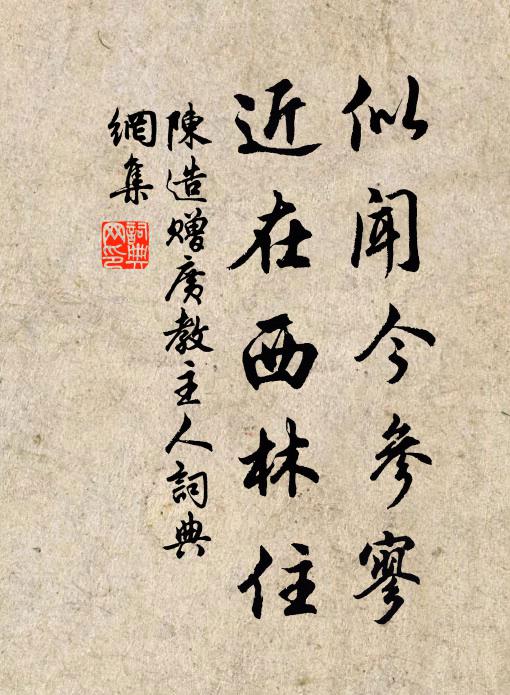 似闻今參寥
近在西林住
陳造赠廣教主人詞典
網集
詞典
网印